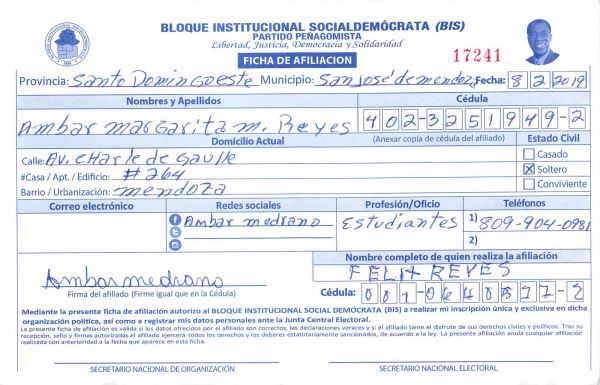 BLOQUE INSTITUCIONAL SOCIALDEMÓCRATA (BIS)
PARTIDO PEÑAGOMISTA
Libertad, Justicia, Democracia y Solidaridad
FICHA DE AFILIACION
17241
Provincia: Santo Domingo este Municipio: San José de mendoza Fecha: 8/2/2019
Nombres y Apellidos
Cédula
Ambar margarita m. Reyes
402-3251949-2
Domicilio Actual
(Anexar copia de cédula del afiliado)
Estado Civil
Calle: Av. charle de Gaulle
#Casa / Apt. / Edificio: #264
Barrio / Urbanización: mendoza
Casado
X Soltero
Conviviente
Correo electrónico
Redes sociales
Profesión/Oficio
Teléfonos
Ambar medrano
Estudiantes
1) 809-904-0981
2)
Nombre completo de quien realiza la afiliación
FELIX REYES
Ambar medrano
Firma del afiliado (Firme igual que en la Cédula)
Cédula:
Mediante la presente ficha de afiliación autorizo al BLOQUE INSTITUCIONAL SOCIAL DEMÓCRATA (BIS) a realizar mi inscripción única y exclusiva en dicha
organización política, así como a registrar mis datos personales ante la Junta Central Electoral.
La presente ficha de afiliación es válida si los datos ofrecidos por el afiliado son correctos, las declaraciones veraces y si el afiliado tiene el disfrute de sus derechos civiles y políticos. Tras su
recepción, sello y firmas autorizadas el afiliado ejercerá todos los derechos y los deberes estatutariamente sancionados, de acuerdo a la ley. La presente afiliación anula cualquier afiliación
realizada con anterioridad a la fecha que aparece en esta ficha.
SECRETARIO NACIONAL DE ORGANIZACIÓN
SECRETARIO NACIONAL ELECTORAL